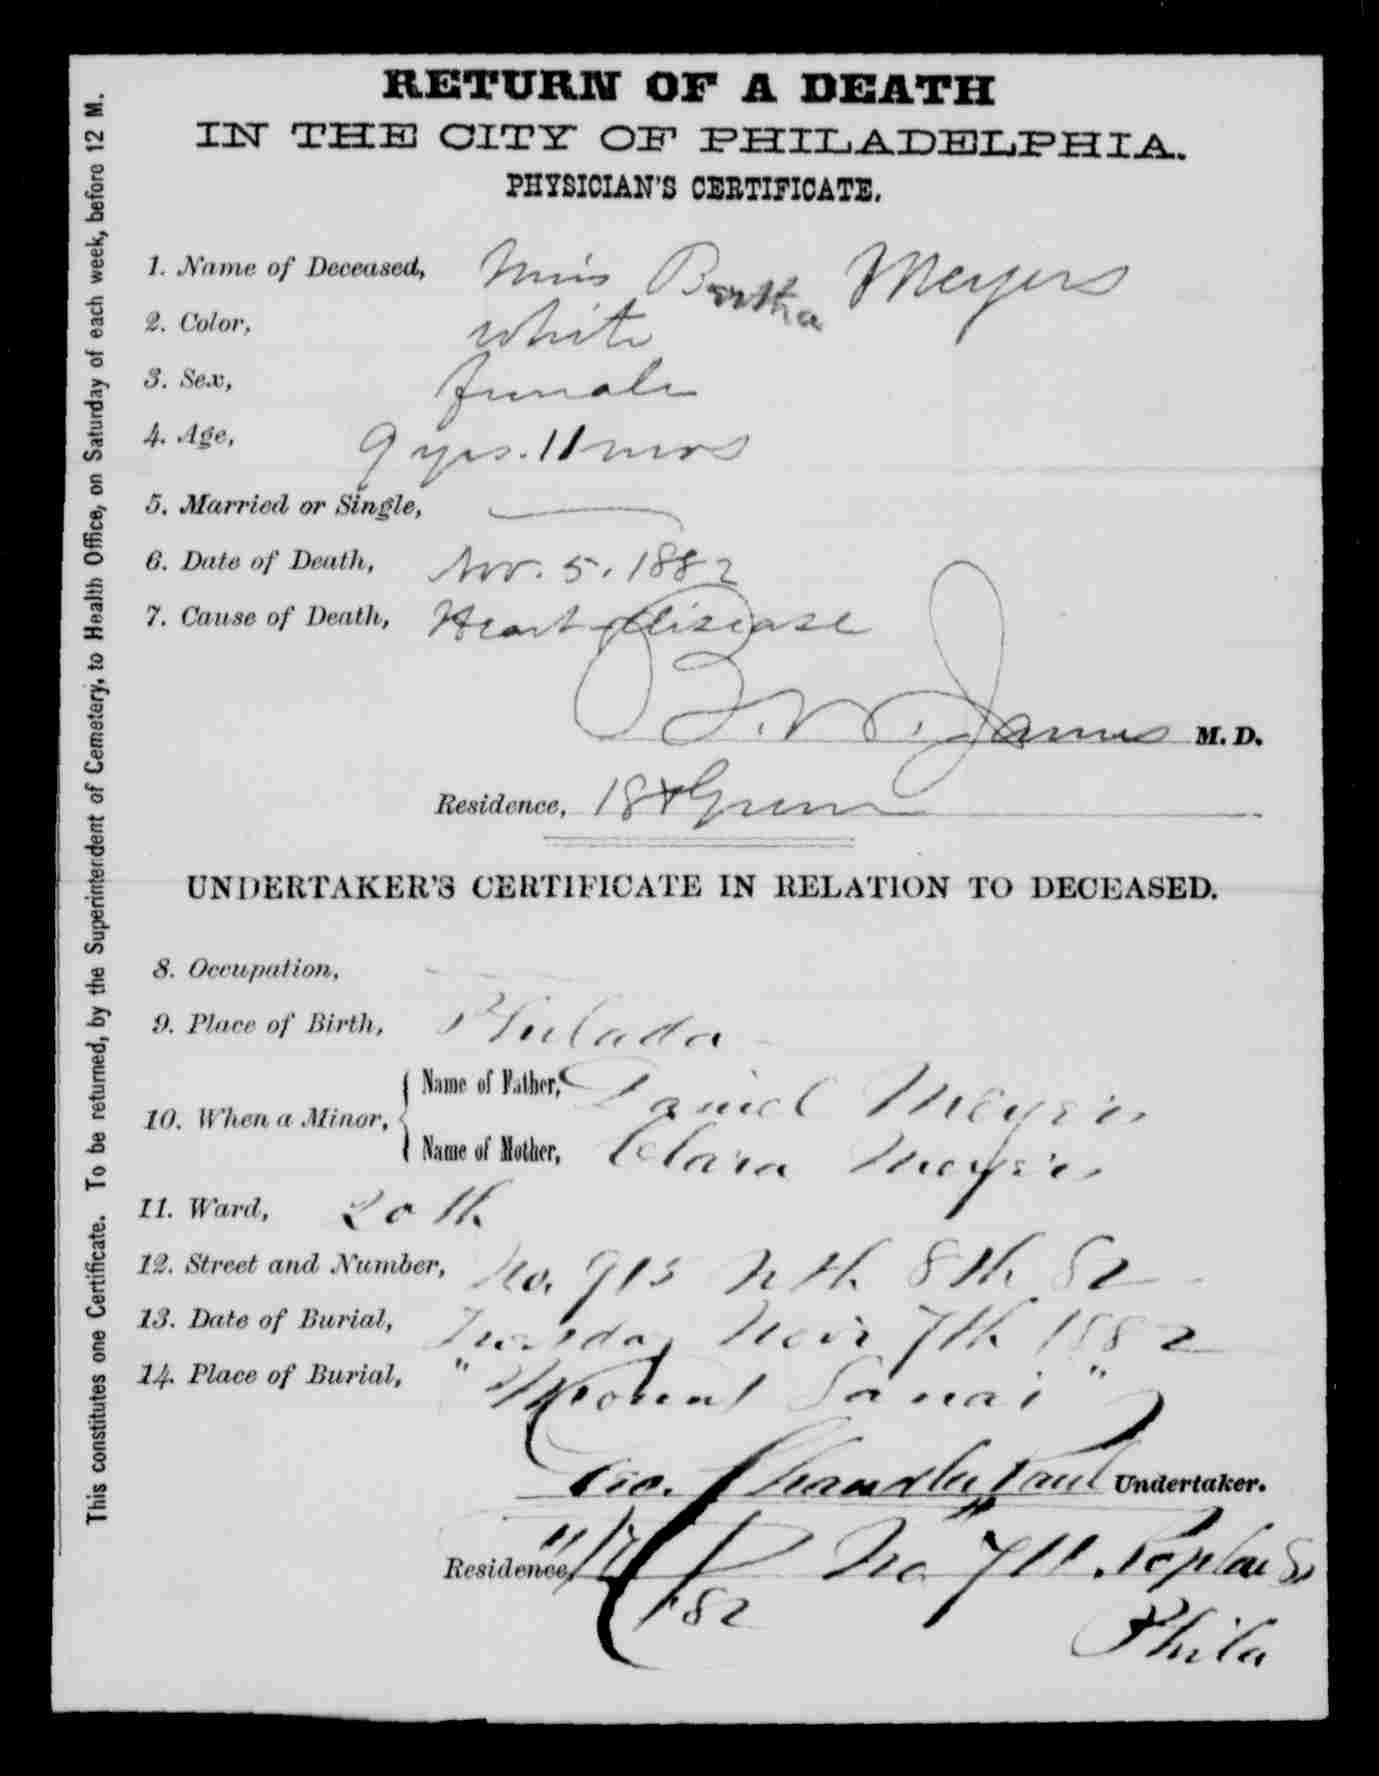 RETURN OF A DEATH
IN THE CITY OF PHILADELPHIA.
PHYSICIAN'S CERTIFICATE.
1. Name of Deceased, Miss Bertha Meyers
2. Color, White
3. Sex, female
4. Age, 9 yrs. 11 mos
5. Married or Single,
6. Date of Death, Nov. 5. 1882
7. Cause of Death, Heart disease
B. W. James M. D.
Residence, 18 & Green
UNDERTAKER'S CERTIFICATE IN RELATION TO DECEASED.
8. Occupation,
9. Place of Birth, Philada
10. When a Minor,
Name of Father, Daniel Meyers
Name of Mother, Clara Meyers
11. Ward, 20th
12. Street and Number, No. 915 Nth 8th St
13. Date of Burial, Tuesday Nov 7th 1882
14. Place of Burial, "Mount Sanai"
Geo. Chandler Paul Undertaker.
Residence, No 711. Poplar St
11/7/82
Phila
This constitutes one Certificate. To be returned, by the Superintendent of Cemetery, to Health Office, on Saturday of each week, before 12 M.